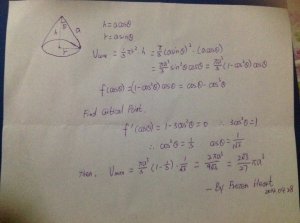 θ
h
a
r
h = a cosθ
r = a sinθ
Vcone = 1/3 πr² h = π/3 (a sinθ)² · (a cosθ)
= πa³/3 sin²θ cosθ = πa³/3 (1-cos²θ) cosθ
f(cosθ) = (1-cos²θ) cosθ = cosθ - cos³θ
Find Critical Point.
f'(cosθ) = 1 - 3cos²θ = 0 ∴ 3cos²θ = 1
∴ cos²θ = 1/3 cosθ = 1/√3
Then, Vmax = πa³/3 (1 - 1/3) · 1/√3 = 2πa³/9√3 = 2√3/27 πa³
- By Frozen Heart
2014.04.28